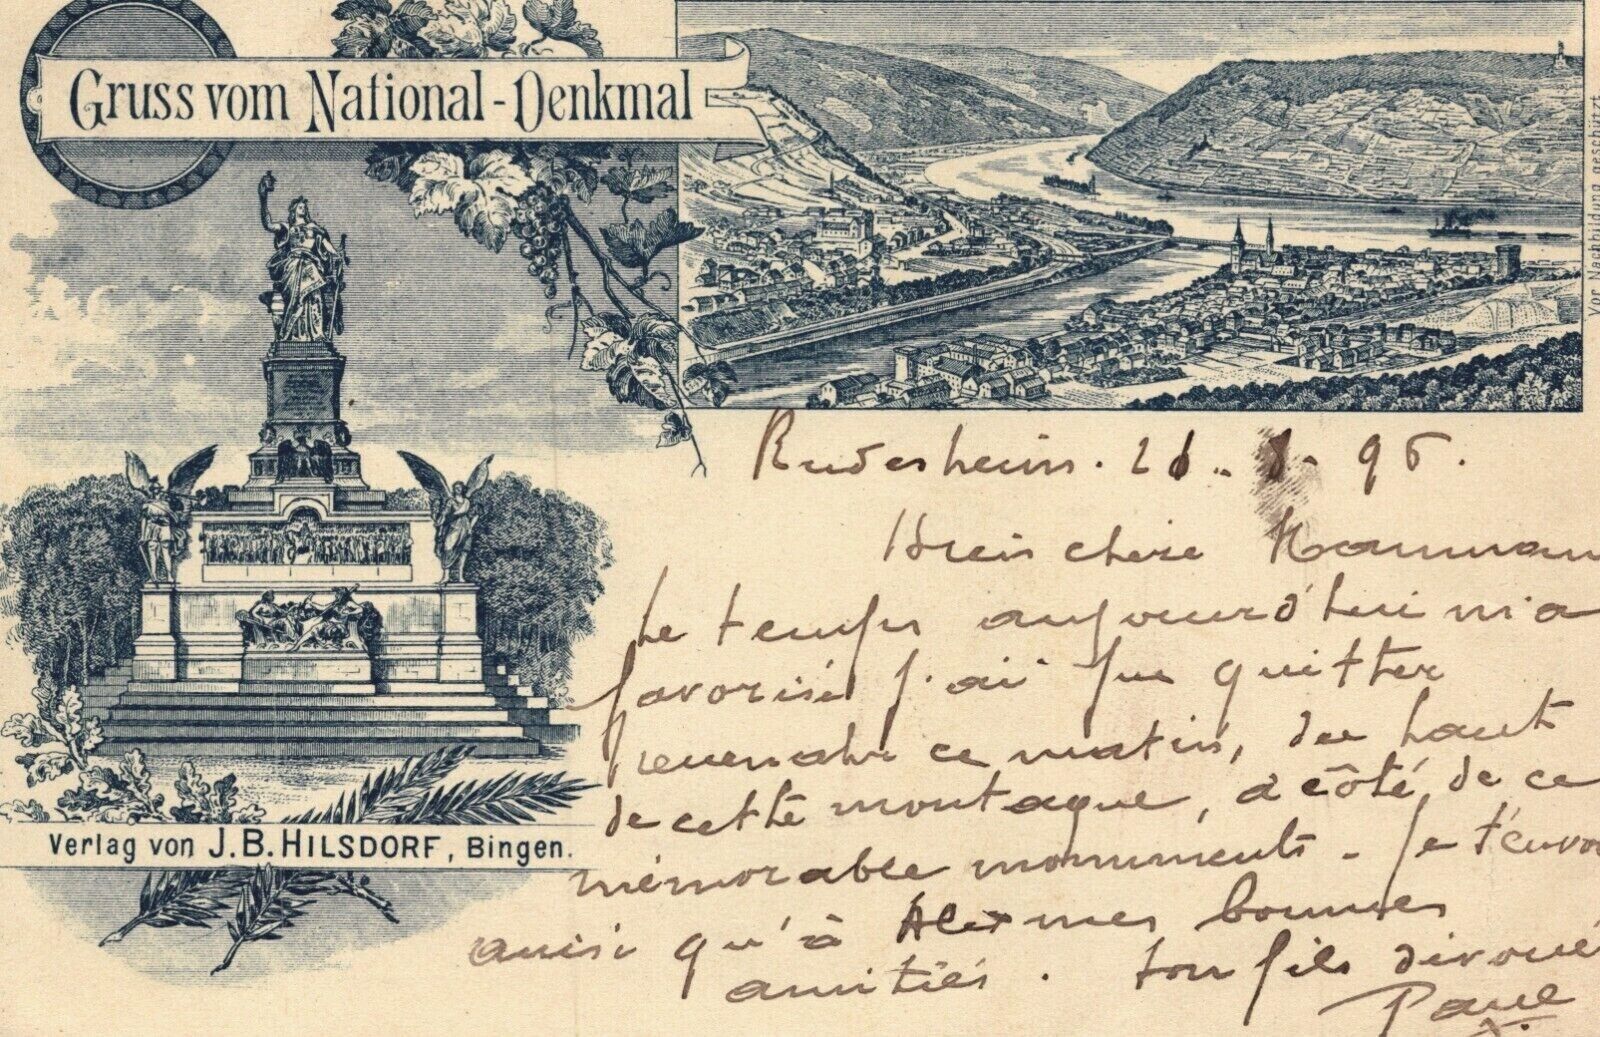 Gruss vom National-Denkmal
Vor Nachbildung geschützt
Verlag von J.B. HILSDORF, Bingen.
Rudesheim. 21.. 8. 96.
chère Maman
Le temps aujourd'hui m'a
favorisé j'ai pu quitter
ce matin, du haut
de cette montagne, à côté de ce
mémorable monuments. Je t'envoi
ainsi qu'à Alex mes bonnes
amitiés. ton fils dévoué
Paul